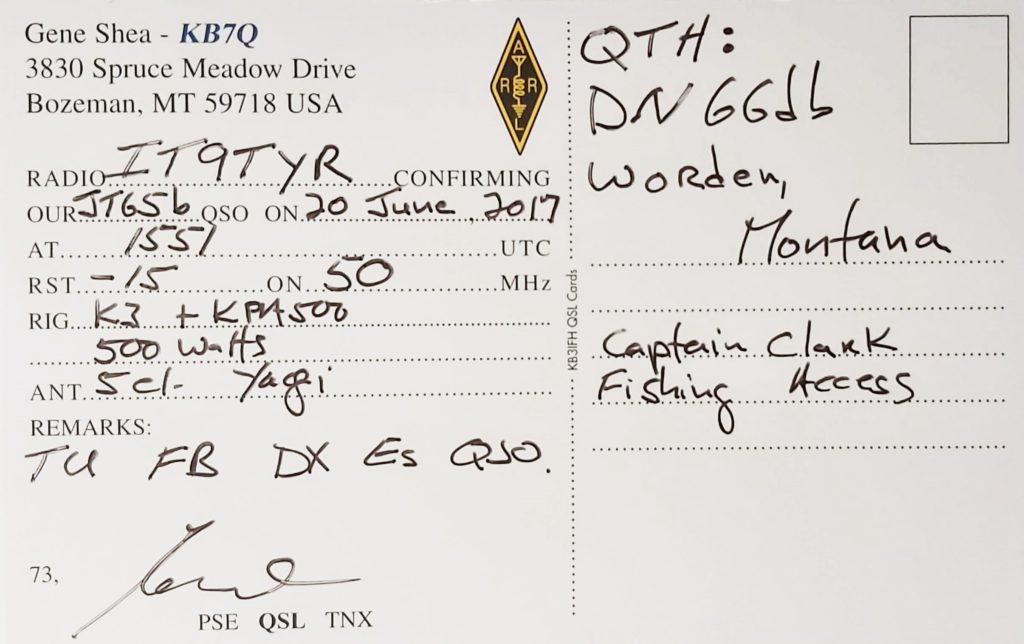 Gene Shea - KB7Q
3830 Spruce Meadow Drive
Bozeman, MT 59718 USA
ARRL
RADIO IT9TYR CONFIRMING
OUR JT65b QSO ON 20 June, 2017
AT 1551 UTC
RST -15 ON 50 MHz
RIG K3 + KPA500
500 Watts
ANT 5el- Yagi
REMARKS:
TU FB DX Es QSO.
73,
PSE QSL TNX
KB3IFH QSL Cards
QTH:
DN66db
Worden,
Montana
Captain Clark
Fishing Access